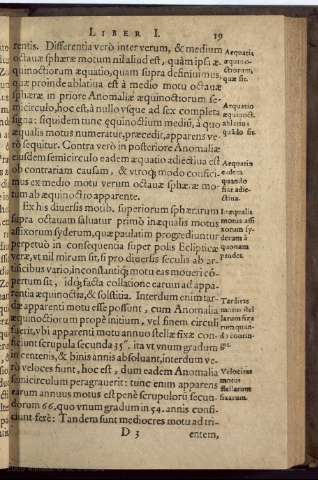 LIBER I. 19
rentis. Differentia verò inter verum, & medium
octauæ sphæræ motum nil aliud est, quàm ipsa æ-
quinoctiorum æquatio, quam supra definiuimus,
quæ proinde ablatiua est à medio motu octauæ
sphæræ in priore Anomaliæ æquinoctiorum se-
micirculo, hoc est, à nullo vsque ad sex completa
signa: siquidem tunc æquinoctium mediũ, à quo
æqualis motus numeratur, præcedit, apparens ve-
rò sequitur. Contra verò in posteriore Anomaliæ
eiusdem semicirculo eadem æquatio adiectiua est
ob contrariam causam, & vtroq; modo confici-
mus ex medio motu verum octauæ sphæræ mo-
tum ab æquinoctio apparente.
Ex his diuersis motib. superiorum sphærarum
supra octauam saluatur primò inæqualis motus
affixorum syderum, quæ paulatim progrediuntur
perpetuò in consequentia super polis Eclipticæ
veræ, vt nil mirum sit, si pro diuersis seculis ab ar-
tificibus vario, inconstantiq; motu eas moueri cõ-
pertum sit, idq; facta collatione earum ad appa-
rentia æquinoctia, & solstitia. Interdum enim tar-
dæ apparenti motu esse possunt, cum Anomalia
æquinoctiorum propè initium, vel finem circuli
fuerit, vbi apparenti motu annuo stellæ fixæ con-
ficiunt scrupula secunda 35". ita vt vnum gradum
in centenis, & binis annis absoluant, interdum ve-
rò veloces fiunt, hoc est, dum eadem Anomalia
semicirculum peragrauerit: tunc enim apparens
earum annuus motus est penè scrupuloru secun-
dorum 66, quo vnum gradum in 54. annis confi-
ciunt ferè: Tandem sunt mediocres motu ad tri-
D 3 entem,
Aequatio
æquino-
ctiorum,
quæ sit.
Aequatio
æquinoct.
ablatiua
quãdo sit.
Aequatio
eadem
quando
fiat adie-
ctiua.
Inæqualis
motus affi
xorum sy-
derum à
quonam
pendet.
Tarditas
motus stel
larum fixa
rum quan-
do contin-
gat.
Velocitas
motus
stellarum
fixarum.